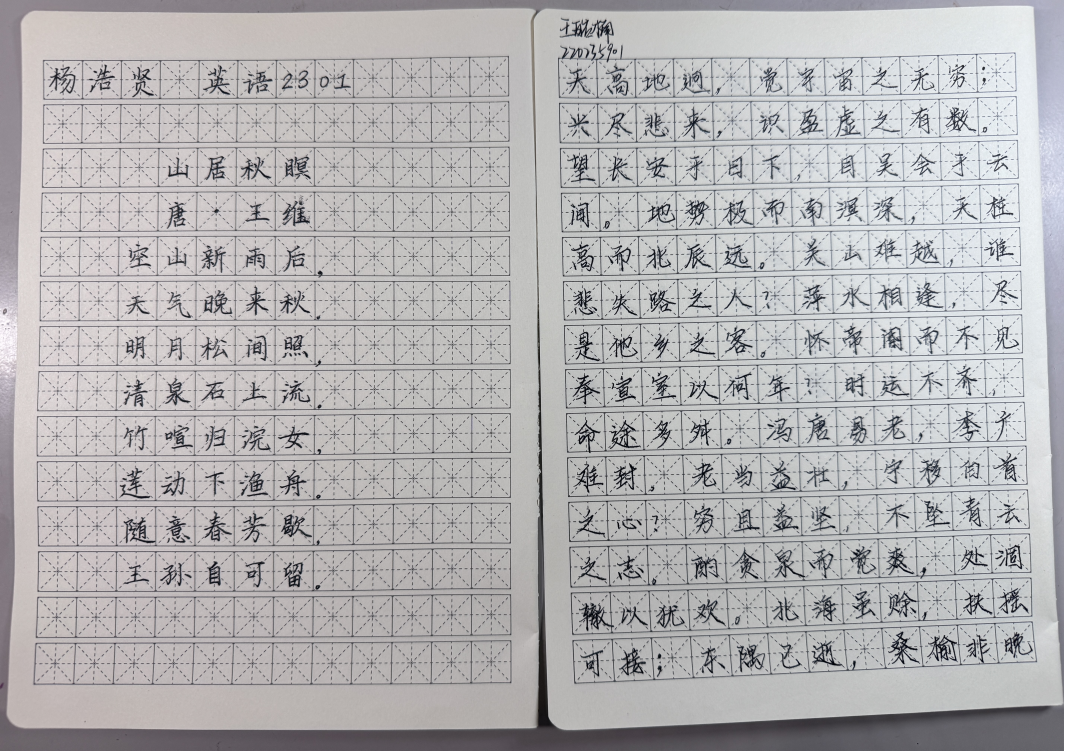 杨浩贤 英语2301
山居秋暝
唐·王维
空山新雨后,
天气晚来秋.
明月松间照,
清泉石上流.
竹喧归浣女,
莲动下渔舟.
随意春芳歇,
王孙自可留.
220235901
天高地迥，觉宇宙之无穷；
兴尽悲来，识盈虚之有数。
望长安于日下，目吴会于云
间。地势极而南溟深，天柱
高而北辰远。关山难越，谁
悲失路之人？萍水相逢，尽
是他乡之客。怀帝阍而不见
奉宣室以何年？时运不齐，
命途多舛。冯唐易老，李广
难封。老当益壮，宁移白首
之心？穷且益坚，不坠青云
之志。酌贪泉而觉爽，处涸
辙以犹欢。北海虽赊，扶摇
可接；东隅已逝，桑榆非晚